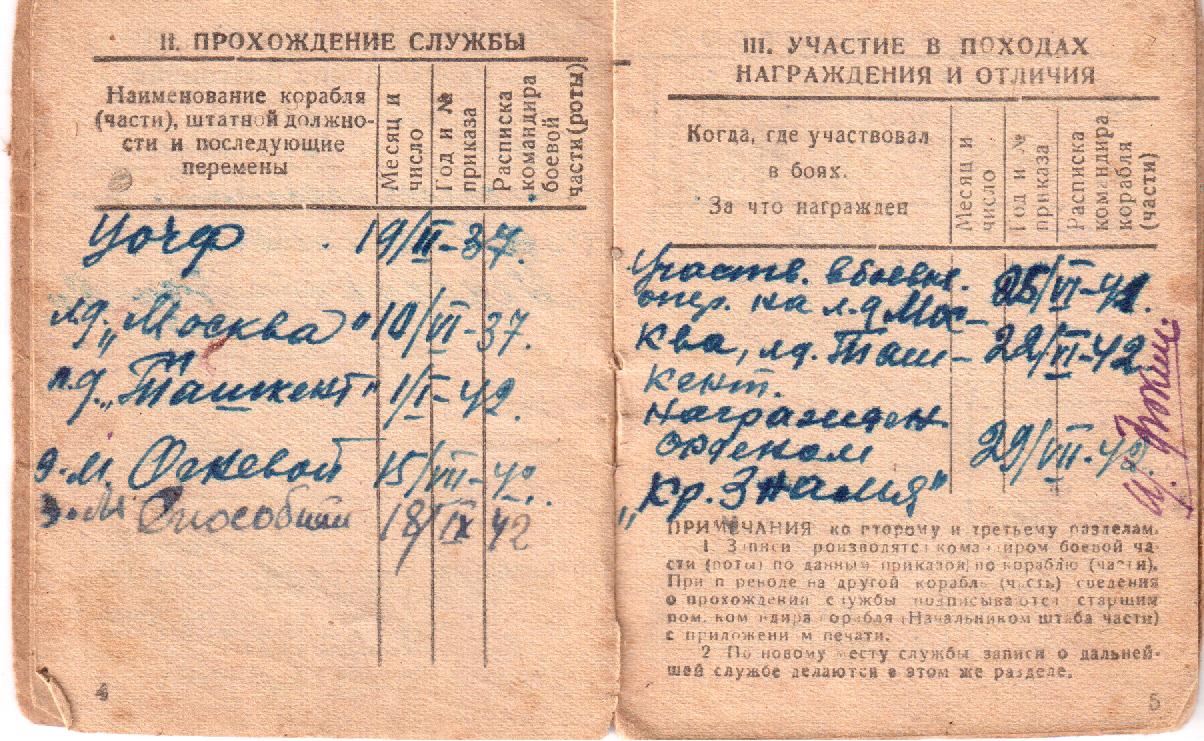 II. ПРОХОЖДЕНИЕ СЛУЖБЫ
Наименование корабля
(части), штатной должно-
сти и последующие
перемены
Месяц и
число
Год и №
приказа
Расписка
командира
боевой
части (роты)
УОЧФ 19/III-37.
лд. „Москва" 10/VI-37.
л.д. „Ташкент" 1/I-42.
э.м. Огневой 15/VII-42.
э.м Способный 18/IX 42
4
III. УЧАСТИЕ В ПОХОДАХ
НАГРАЖДЕНИЯ И ОТЛИЧИЯ
Когда, где участвовал
в боях.
За что награжден
Месяц и
число
Год и №
приказа
Расписка
командира
корабля
(части)
Участв. в боевых.
опер. на л.д Мос- 25/VI-42.
ква, лд. Таш- 22/VI-42.
кент.
Награжден
орденом 29/VII-42.
„Кр. Знамя"
ПРИМЕЧАНИЯ ко второму и третьему разделам.
1 Записи роизводятся командиром боевой ча-
сти (роты) по данным приказов по кораблю (части).
При п реходе на другой корабль (часть) сведения
о прохождении службы подписываются старшим
пом. ком ндира корабля (Начальником штаба части)
с приложени м печати.
2 По новому месту службы записи о дальней-
шей службе делаются в этом же разделе.
5